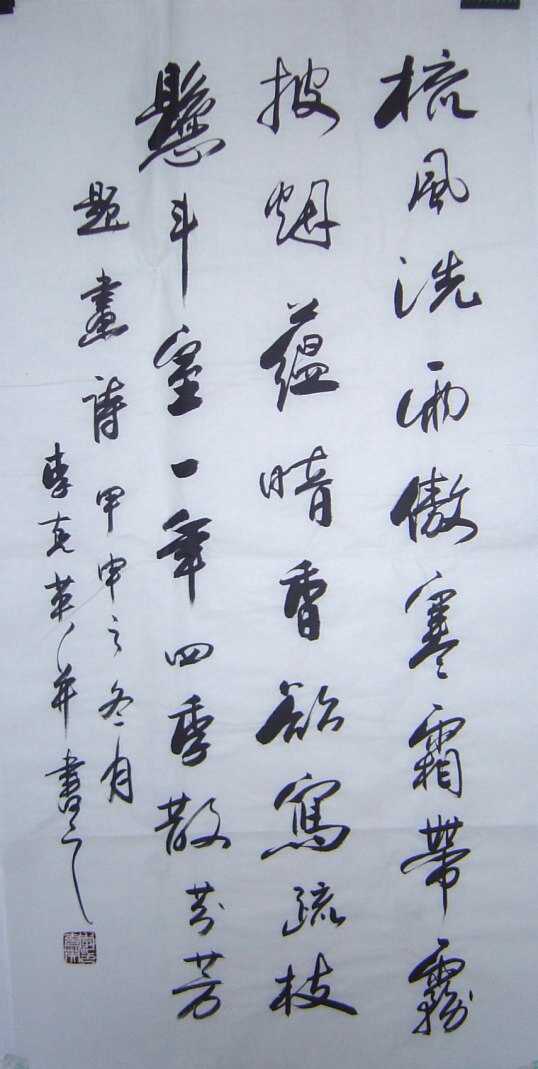 梳風洗雨傲寒霜帶霧
披烟蘊暗香欲寫疏枝
懸斗室一年四季散芬芳
題畫詩甲申之冬月
李克英并書之